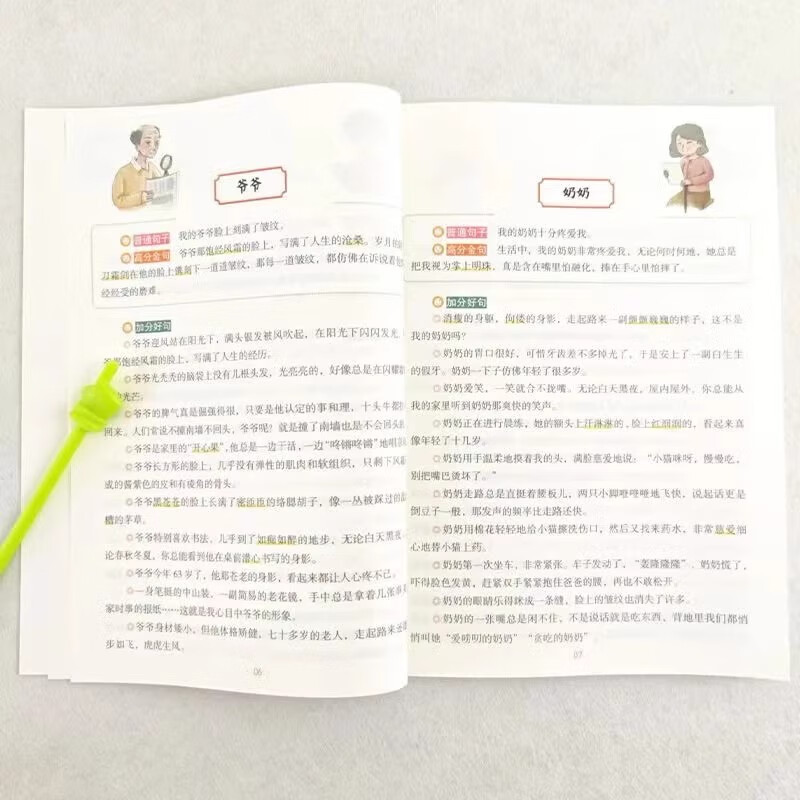 爷爷
普通句子 我的爷爷脸上刻满了皱纹。
高分金句 爷爷那饱经风霜的脸上,写满了人生的沧桑。岁月的
刀霜剑在他的脸上镌刻下一道道皱纹,那每一道皱纹,都仿佛在诉说着他
经经受的磨难。
加分好句
◎爷爷迎风站在阳光下,满头银发被风吹起,在阳光下闪闪发光
那饱经风霜的脸上,写满了人生的经历。
◎爷爷光秃秃的脑袋上没有几根头发,光亮亮的,好像总是在闪耀
光芒。
◎爷爷的脾气真是倔强得很,只要是他认定的事和理,十头牛都
回来。人们常说不撞南墙不回头,爷爷呢?就是撞了南墙也是不会回头
◎爷爷是家里的“开心果”,他总是一边干活,一边“咚锵咚锵”地唱
◎爷爷长方形的脸上,几乎没有弹性的肌肉和软组织,只剩下风
成的酱紫色的皮和有棱角的骨头。
◎爷爷黑苍苍的脸上长满了密匝匝的络腮胡子,像一丛被踩过的
糟的茅草。
◎爷爷特别喜欢书法,几乎到了如痴如醉的地步,无论白天黑夜
论春秋冬夏,你总能看到他在桌前潜心书写的身影。
◎爷爷今年63岁了,他那苍老的身影,看起来都让人心疼不已。
◎一身笔挺的中山装,一副简易的老花镜,手中总是拿着几张
家时事的报纸……这就是我心目中爷爷的形象。
◎爷爷身材矮小,但他体格矫健,七十多岁的老人,走起路来
步如飞,虎虎生风。
06
奶奶
普通句子 我的奶奶十分疼爱我。
高分金句 生活中,我的奶奶非常疼爱我,无论何时何地,她总是
把我视为掌上明珠,真是含在嘴里怕融化,捧在手心里怕摔了。
加分好句
◎消瘦的身躯,佝偻的身影,走起路来一副颤颤巍巍的样子,这不是
我的奶奶吗?
◎奶奶的胃口很好,可惜牙齿差不多掉光了,于是安上了一副白生生
的假牙。奶奶一下子仿佛年轻了很多岁。
◎奶奶爱笑,一笑就合不拢嘴。无论白天黑夜,屋内屋外,你总能从
我的家里听到奶奶那爽快的笑声。
◎奶奶正在进行晨练,她的额头上汗淋淋的,脸上红润润的,看起来真
像年轻了十几岁。
◎奶奶用手温柔地摸着我的头,满脸慈爱地说:“小猫咪呀,慢慢吃,
别把嘴巴烫坏了。”
◎奶奶走路总是直挺着腰板儿,两只小脚噔噔噔地飞快,说起话更是
倒豆子一般,那发声的频率比走路还快。
◎奶奶用棉花轻轻地给小猫擦洗伤口,然后又找来药水,非常慈爱细
心地替小猫上药。
◎奶奶第一次坐车,非常紧张。车子发动了,“轰隆隆隆”,奶奶慌了,
吓得脸色发黄,赶紧双手紧紧抱住爸爸的腰,再也不敢松开。
◎奶奶的眼睛乐得眯成一条缝,脸上的皱纹也消失了许多。
◎奶奶的一张嘴总是闲不住,不是说话就是吃东西,背地里我们都悄
悄叫她“爱唠叨的奶奶”“贪吃的奶奶”
07